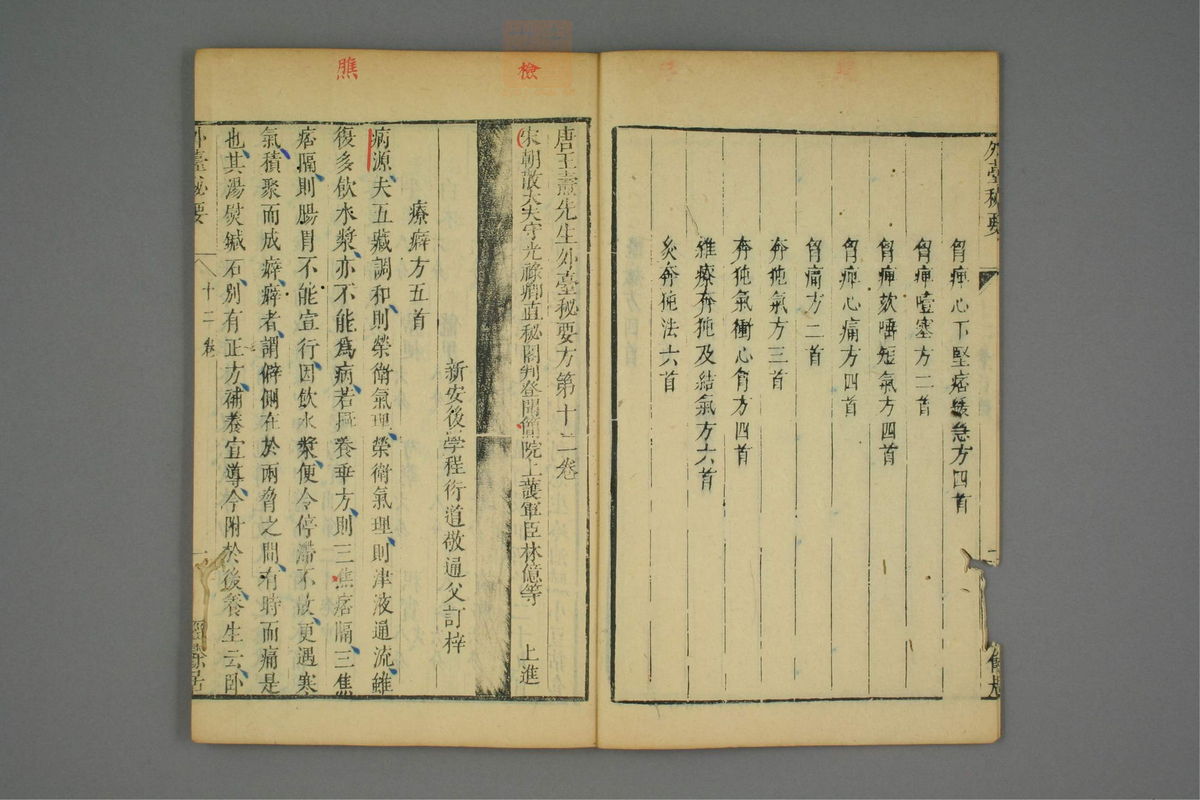 外臺秘要
胷痺心下堅痞緩急方四首
胷痺噎塞方二首
胷痺欬唾短氣方四首
胷痺心痛方四首
胷痛方二首
奔㹠氣方三首
奔㹠氣衝心胷方四首
雜療奔㹠及結氣方六首
灸奔㹠法六首
檢
唐王燾先生外臺秘要方第十二卷
宋朝散大夫守光祿卿直秘閣判登聞簡院上護軍臣林億等 上進
新安後學程衍道敬通父訂梓
療癖方五首
病源夫五藏調和則榮衛氣理榮衛氣理則津液通流雖
復多飲水漿亦不能為病若攝養乖方則三焦痞隔三焦
痞隔則腸胃不能宣行因飲水漿便令停滯不散更遇寒
氣積聚而成癖癖者謂僻側在於兩脅之間有時而痛是
也其湯熨鍼石別有正方補養宣導今附於後養生云卧
外臺秘要
十二卷
一
經餘居